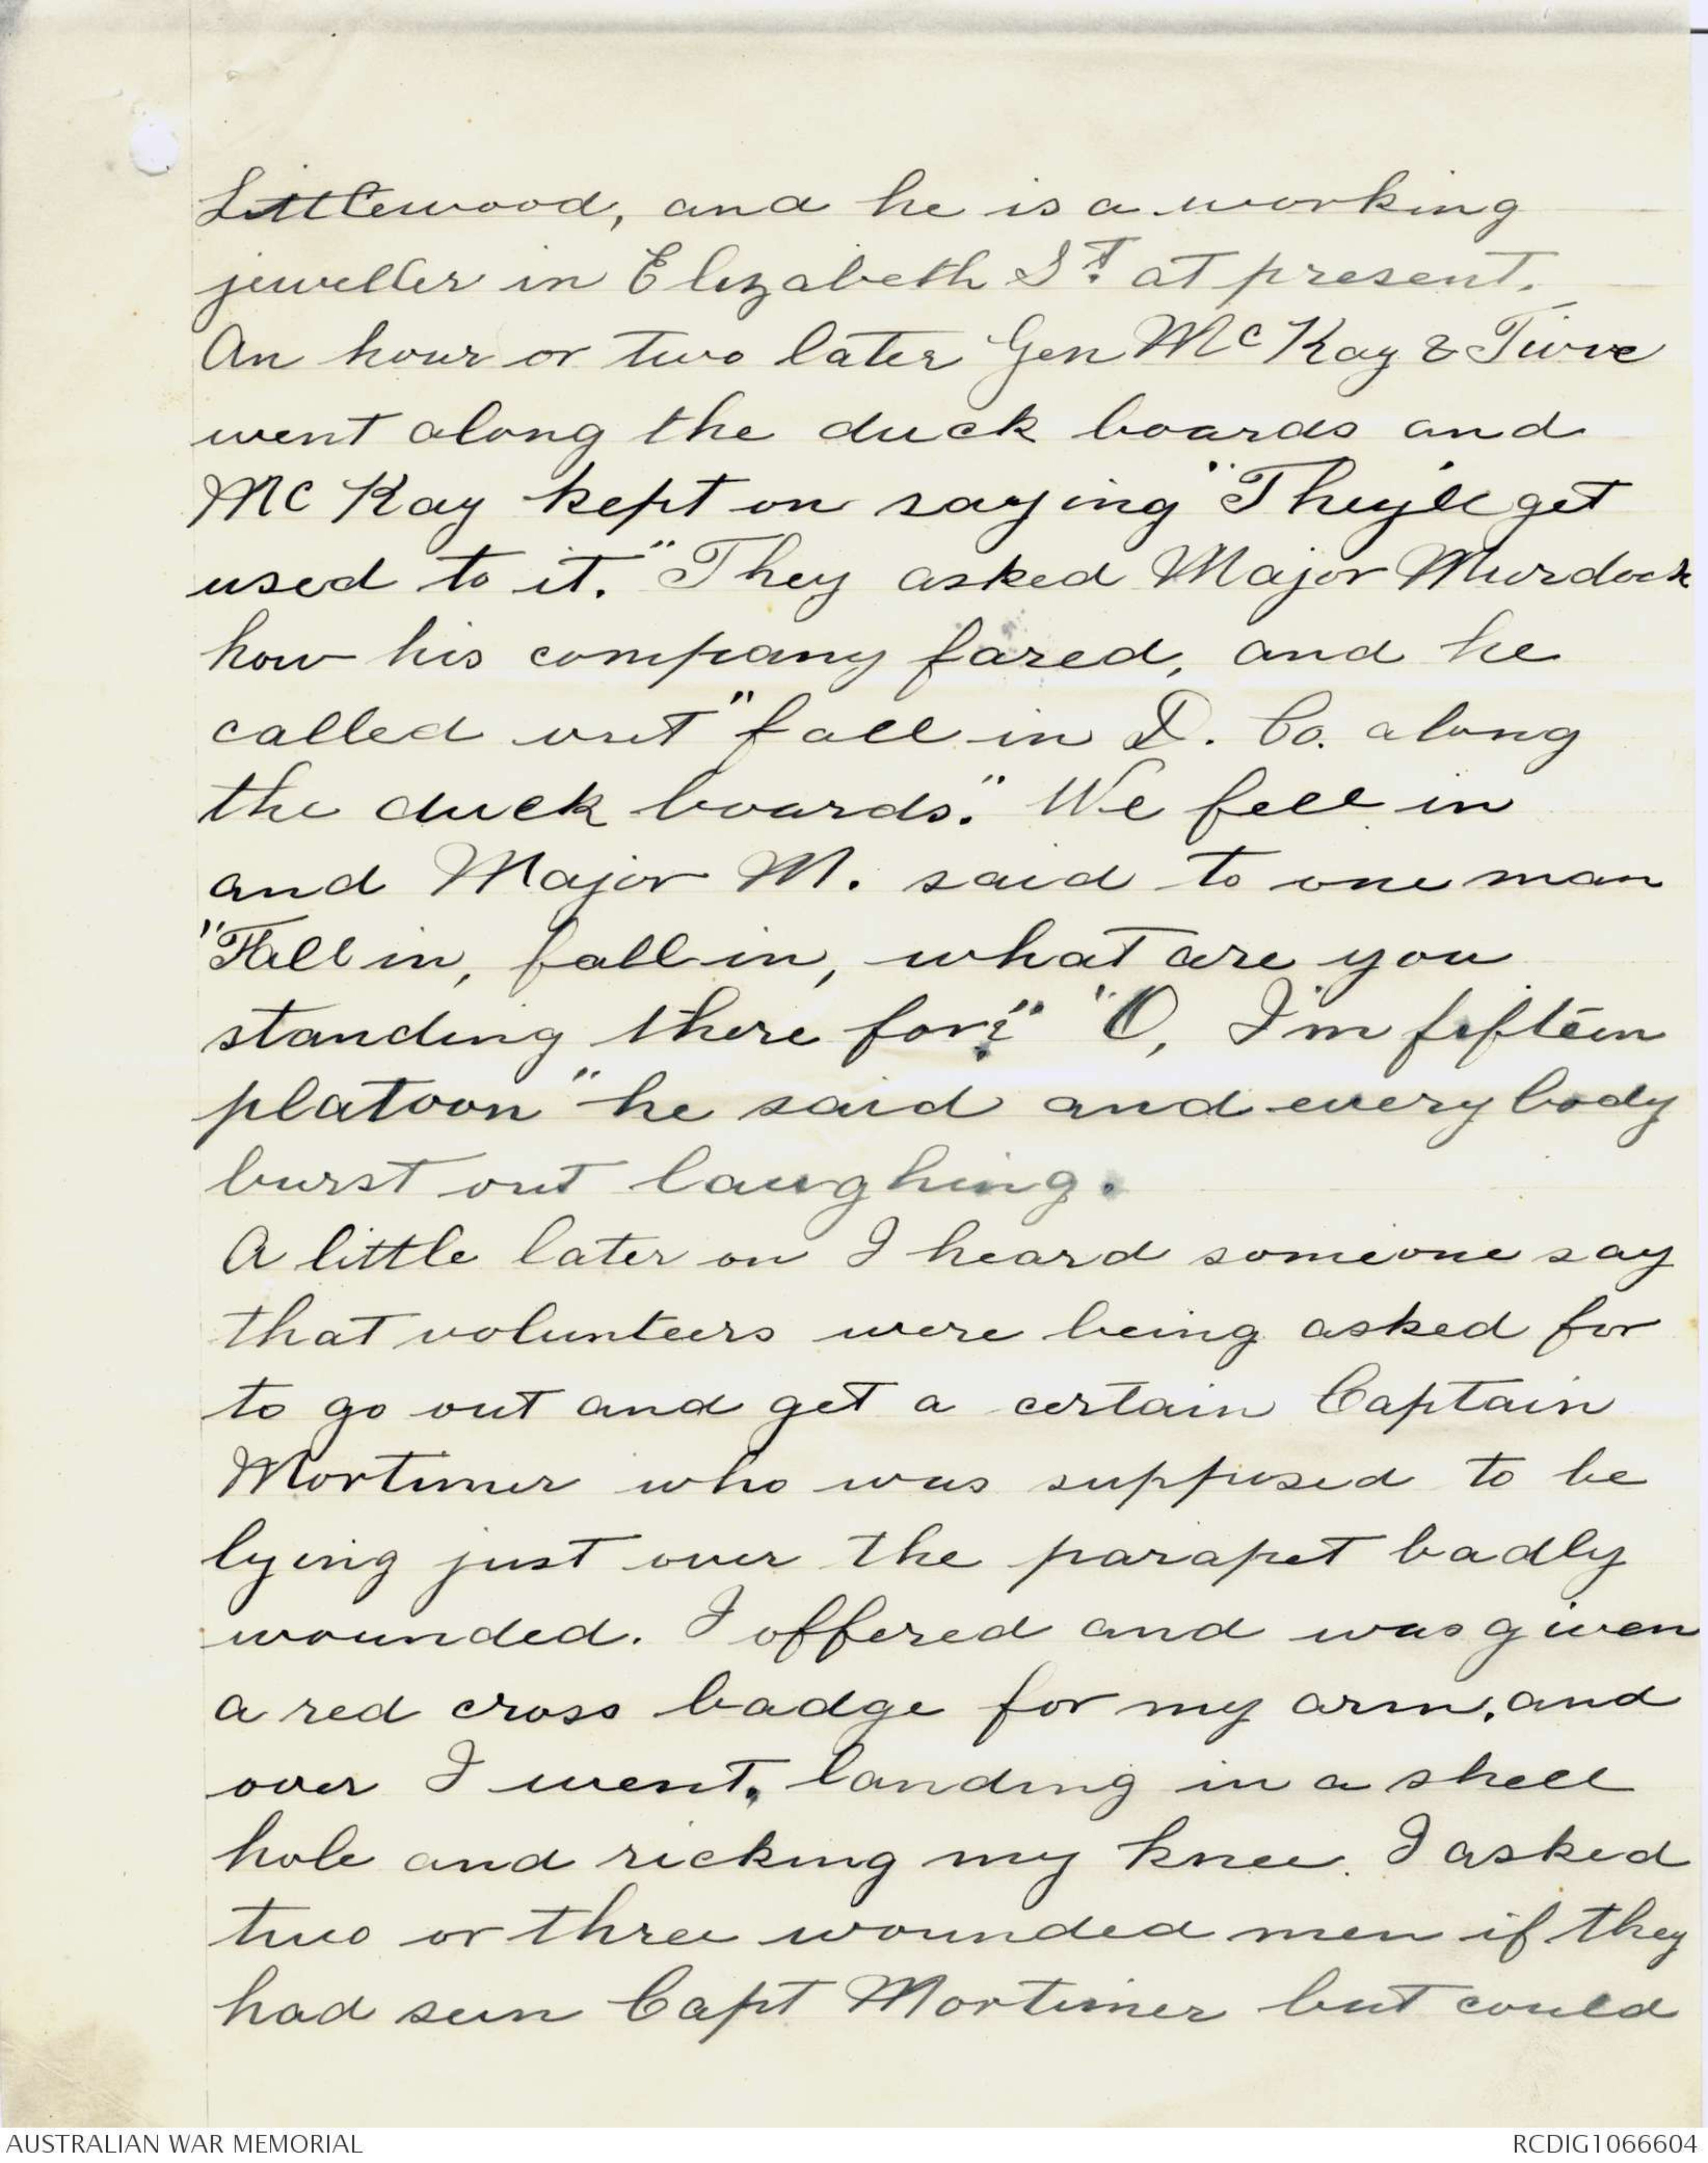 Littlewood, and he is a working
jeweller in Elizabeth St. at present.
An hour or two later Gen McKay & Tivve
went along the duck boards and
McKay kept on saying "They'll get
used to it." They asked Major Murdock
how his company fared, and he
called out "fall in D. Co. along
the duck boards." We fell in
and Major M. said to one man
"Fall in, fall in, what are you
standing there for?" "O, I'm fifteen
platoon" he said and everybody
burst out laughing.
A little later on I heard someone say
that volunteers were being asked for
to go out and get a certain Captain
Mortimer who was supposed to be
lying just over the parapet badly
wounded. I offered and was given
a red cross badge for my arm, and
over I went, landing in a shell
hole and ricking my knee. I asked
two or three wounded men if they
had seen Capt Mortimer but could
AUSTRALIAN WAR MEMORIAL
RCDIG1066604